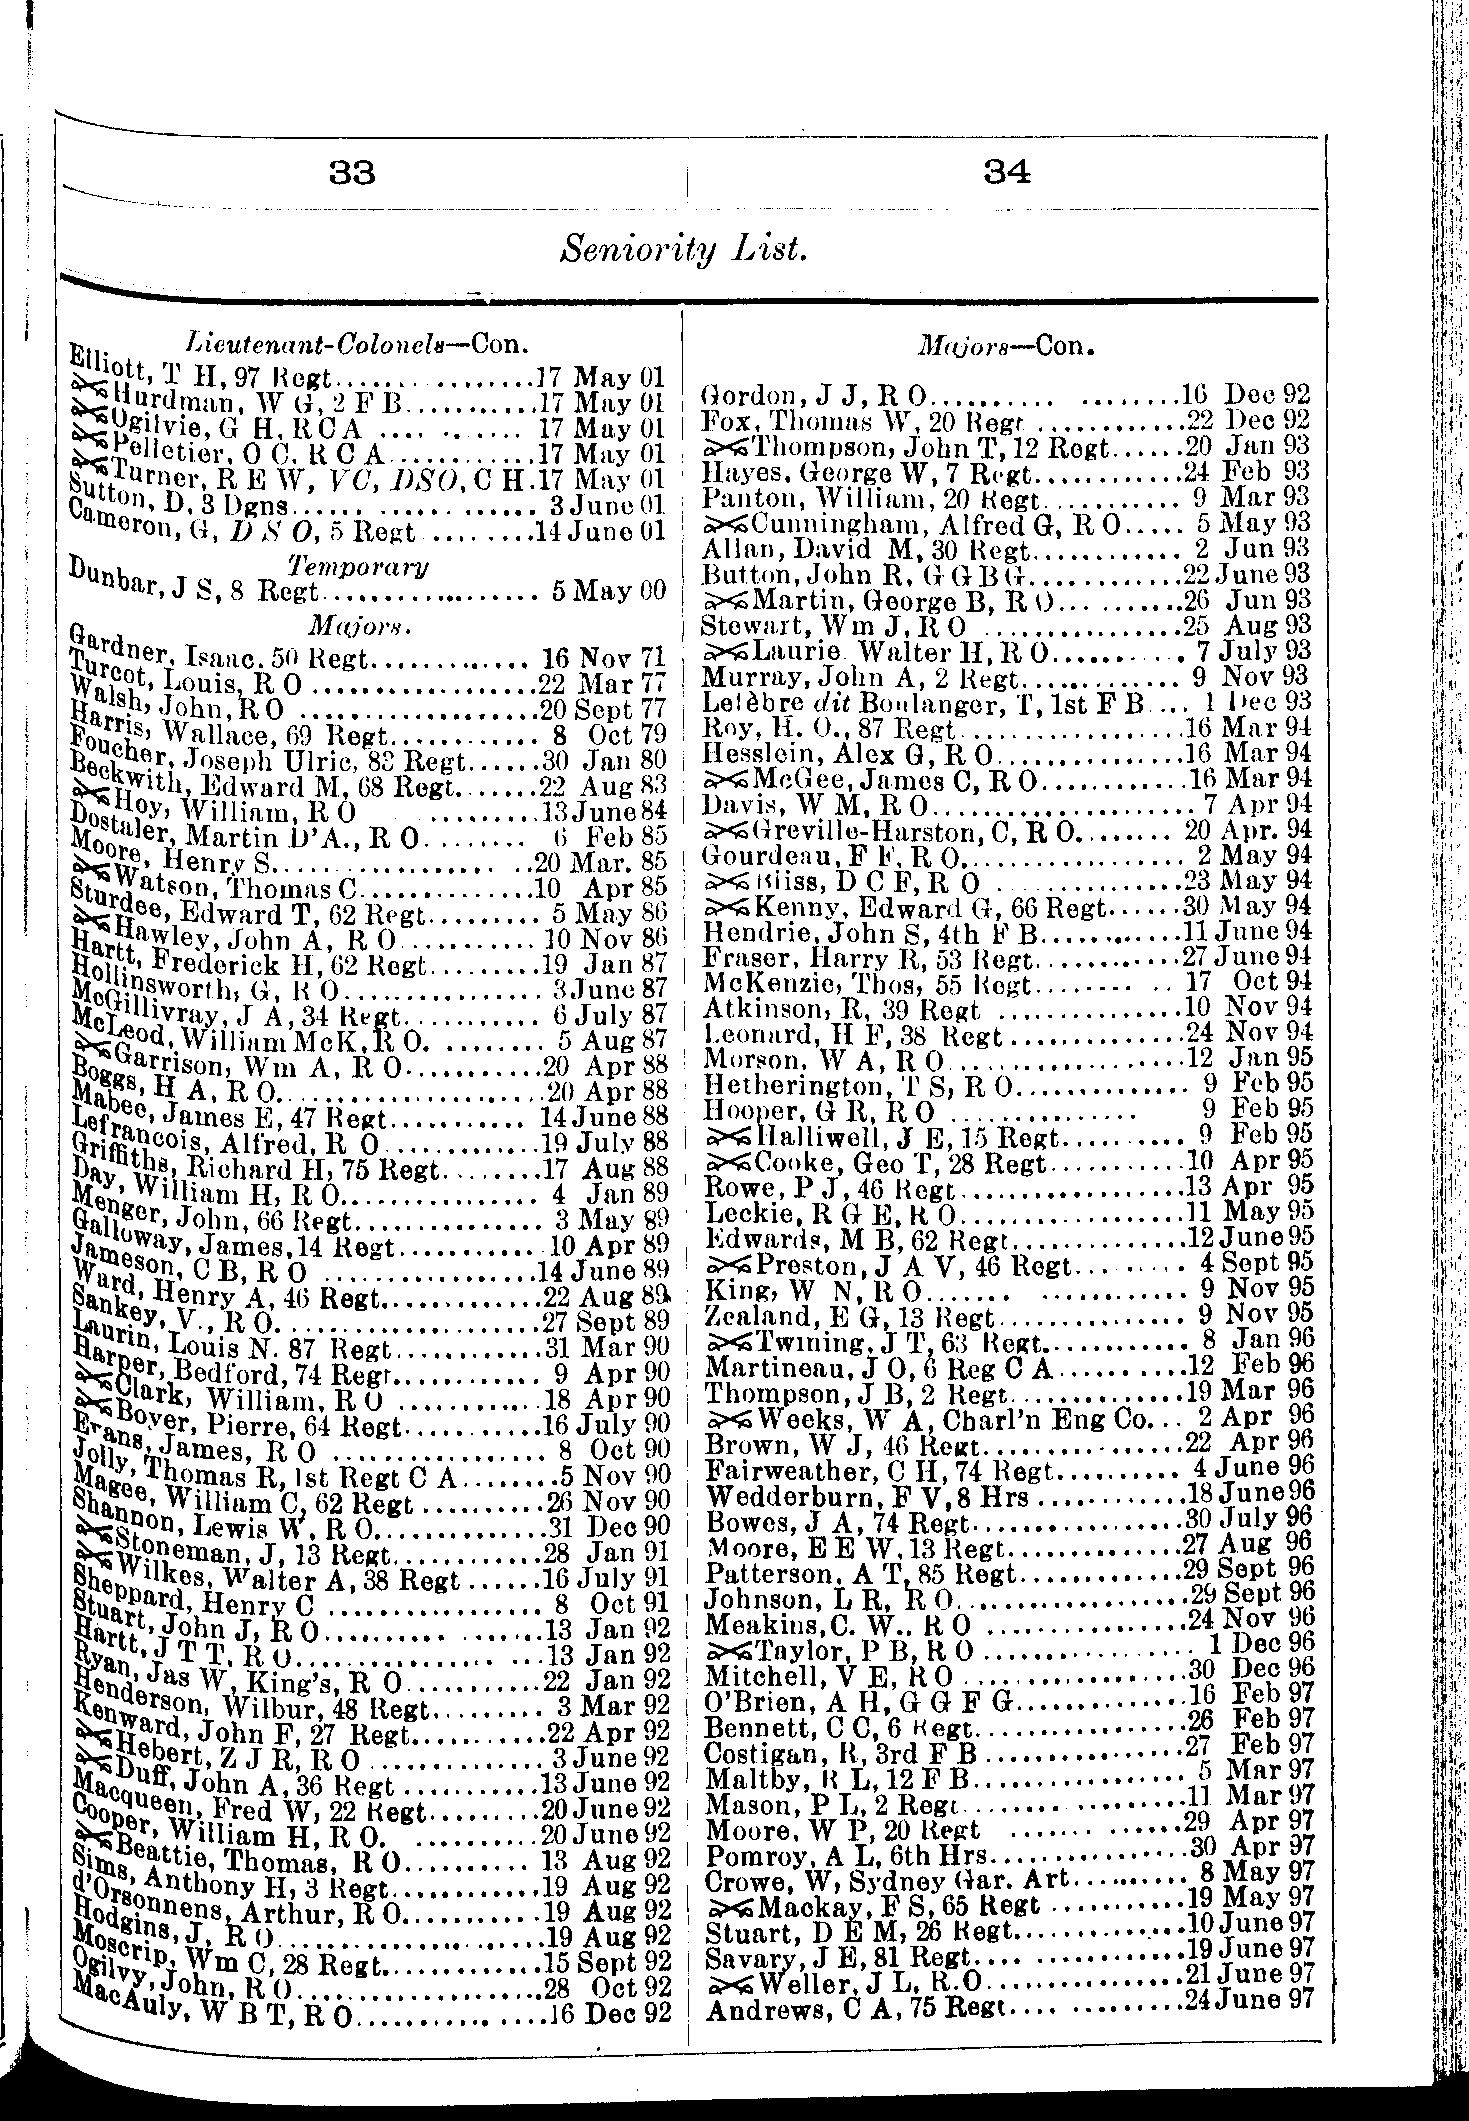 33
34
Seniority List.
Lieutenant-Colonels—Con.
Elliott, T H, 97 Regt.................17 May 01
Hurdman, W G, 2 F B...........17 May 01
Ogilvie, G H, R C A ............ 17 May 01
Pelletier, O C, R C A............17 May 01
Turner, R E W, VC, DSO, C H.17 May 01
Sutton, D, 3 Dgns.................... 3 June 01
Cameron, G, D S O, 5 Regt .........14 June 01
Temporary
Dunbar, J S, 8 Regt.................... 5 May 00
Majors.
Gardner, Isaac, 50 Regt............. 16 Nov 71
Turcot, Louis, R O ...................22 Mar 77
Walsh, John, R O ....................20 Sept 77
Harris, Wallace, 69 Regt............ 8 Oct 79
Foucher, Joseph Ulric, 83 Regt......30 Jan 80
Beckwith, Edward M, 68 Regt.......22 Aug 83
Hoy, William, R O .........13 June 84
Dostaler, Martin D'A., R O........ 6 Feb 85
Moore, Henry S.....................20 Mar. 85
Watson, Thomas C..............10 Apr 85
Sturdee, Edward T, 62 Regt......... 5 May 86
Hawley, John A, R O........... 10 Nov 86
Hartt, Frederick H, 62 Regt.........19 Jan 87
Hollinsworth, G, R O................. 3 June 87
McGillivray, J A, 34 Regt............ 6 July 87
McLeod, William McK, R O. ........ 5 Aug 87
Garrison, Wm A, R O...........20 Apr 88
Boggs, H A, R O......................20 Apr 88
Mabee, James E, 47 Regt........... 14 June 88
Lefrancois, Alfred, R O.............19 July 88
Griffiths, Richard H, 75 Regt........17 Aug 88
Day, William H, R O................ 4 Jan 89
Menger, John, 66 Regt............... 3 May 89
Galloway, James, 14 Regt........... 10 Apr 89
Jameson, C B, R O .................14 June 89
Ward, Henry A, 46 Regt.............22 Aug 89
Sankey, V., R O......................27 Sept 89
Laurin, Louis N. 87 Regt............31 Mar 90
Harper, Bedford, 74 Regt............ 9 Apr 90
Clark, William, R O ............18 Apr 90
Boyer, Pierre, 64 Regt...........16 July 90
Evans, James, R O ................. 8 Oct 90
Jolly, Thomas R, 1st Regt C A........5 Nov 90
Magee, William C, 62 Regt ..........26 Nov 90
Shannon, Lewis W, R O..............31 Dec 90
Stoneman, J, 13 Regt............28 Jan 91
Wilkes, Walter A, 38 Regt ......16 July 91
Sheppard, Henry C .................. 8 Oct 91
Stuart, John J, R O.................13 Jan 92
Hartt, J T T, R O...................13 Jan 92
Ryan, Jas W, King's, R O...........22 Jan 92
Henderson, Wilbur, 48 Regt......... 3 Mar 92
Kenward, John F, 27 Regt...........22 Apr 92
Hebert, Z J R, R O .............. 3 June 92
Duff, John A, 36 Regt ...........13 June 92
Macqueen, Fred W, 22 Regt.........20 June 92
Cooper, William H, R O. ..........20 June 92
Beattie, Thomas, R O.......... 13 Aug 92
Sims, Anthony H, 3 Regt............19 Aug 92
d'Orsonnens, Arthur, R O...........19 Aug 92
Hodgins, J, R O.....................19 Aug 92
Moscrip, Wm C, 28 Regt.............15 Sept 92
Ogilvy, John, R O....................28 Oct 92
MacAuly, W B T, R O................16 Dec 92
Majors—Con.
Gordon, J J, R O..................16 Dec 92
Fox, Thomas W, 20 Regt ............22 Dec 92
Thompson, John T, 12 Regt......20 Jan 93
Hayes, George W, 7 Regt............24 Feb 93
Panton, William, 20 Regt........... 9 Mar 93
Cunningham, Alfred G, R O..... 5 May 93
Allan, David M, 30 Regt............ 2 Jun 93
Button, John R, G G B G............22 June 93
Martin, George B, R O...........26 Jun 93
Stewart, Wm J, R O ................25 Aug 93
Laurie, Walter H, R O........... 7 July 93
Murray, John A, 2 Regt............. 9 Nov 93
Lefèbre dit Boulanger, T, 1st F B.... 1 Dec 93
Roy, H. O., 87 Regt.................16 Mar 94
Hesslein, Alex G, R O...............16 Mar 94
McGee, James C, R O............16 Mar 94
Davis, W M, R O...................... 7 Apr 94
Greville-Harston, C, R O........ 20 Apr. 94
Gourdeau, F F, R O................... 2 May 94
Bliss, D C F, R O ...............23 May 94
Kenny, Edward G, 66 Regt......30 May 94
Hendrie, John S, 4th F B............11 June 94
Fraser, Harry R, 53 Regt............27 June 94
McKenzie, Thos, 55 Regt.......... 17 Oct 94
Atkinson, R, 39 Regt ...............10 Nov 94
Leonard, H F, 38 Regt..............24 Nov 94
Morson, W A, R O..................12 Jan 95
Hetherington, T S, R O.............. 9 Feb 95
Hooper, G R, R O ................ 9 Feb 95
Halliwell, J E, 15 Regt.......... 9 Feb 95
Cooke, Geo T, 28 Regt...........10 Apr 95
Rowe, P J, 46 Regt..................13 Apr 95
Leckie, R G E, R O..................11 May 95
Edwards, M B, 62 Regt..............12 June 95
Preston, J A V, 46 Regt......... 4 Sept 95
King, W N, R O.................... 9 Nov 95
Zealand, E G, 13 Regt............... 9 Nov 95
Twining, J T, 63 Regt............ 8 Jan 96
Martineau, J O, 6 Reg C A..........12 Feb 96
Thompson, J B, 2 Regt..............19 Mar 96
Weeks, W A, Charl'n Eng Co... 2 Apr 96
Brown, W J, 46 Regt................22 Apr 96
Fairweather, C H, 74 Regt.......... 4 June 96
Wedderburn, F V, 8 Hrs ............18 June 96
Bowes, J A, 74 Regt.................30 July 96
Moore, E E W, 13 Regt..............27 Aug 96
Patterson, A T, 85 Regt.............29 Sept 96
Johnson, L R, R O...................29 Sept 96
Meakins, C. W.. R O ................24 Nov 96
Taylor, P B, R O ................. 1 Dec 96
Mitchell, V E, R O ..................30 Dec 96
O'Brien, A H, G G F G..............16 Feb 97
Bennett, C C, 6 Regt.................26 Feb 97
Costigan, R, 3rd F B................27 Feb 97
Maltby, R L, 12 F B................. 5 Mar 97
Mason, P L, 2 Regt..................11 Mar 97
Moore, W P, 20 Regt ..............29 Apr 97
Pomroy, A L, 6th Hrs................30 Apr 97
Crowe, W, Sydney Gar. Art.......... 8 May 97
Mackay, F S, 65 Regt ...........19 May 97
Stuart, D E M, 26 Regt..............10 June 97
Savary, J E, 81 Regt.................19 June 97
Weller, J L, R.O................21 June 97
Andrews, C A, 75 Regt..............24 June 97